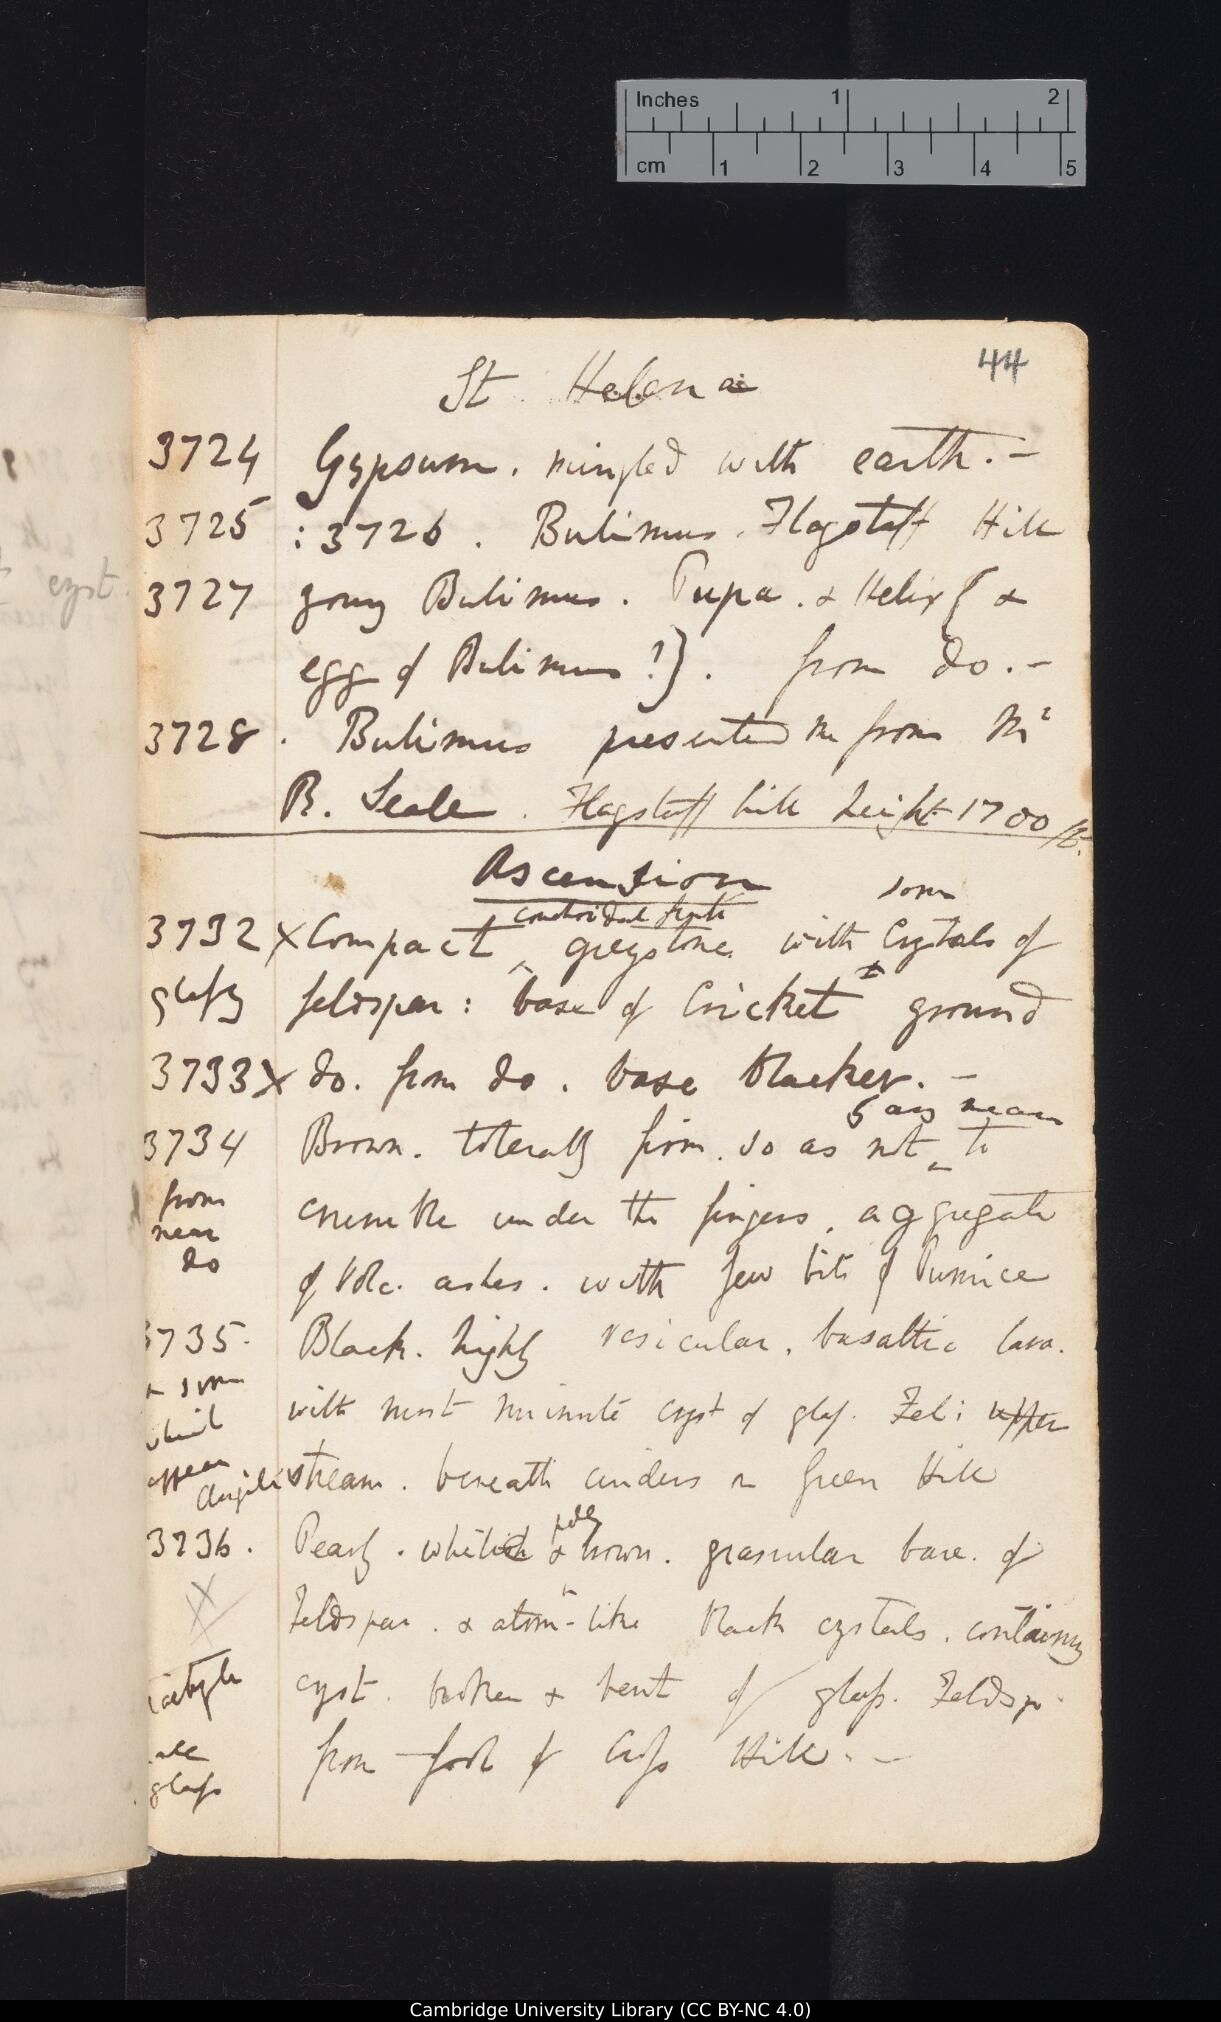 Inches 1 2
cm 1 2 3 4 5
44
St. Helena
3724 Gypsum. mingled with earth. —
3725 : 3726. Bulimus. Flagstaff Hill
3727 young Bulimus. Pupa. & Helix { &
egg of Bulimus ?}. from do. —
3728. Bulimus presented me from Mr
R. Seale. Flagstaff hill height 1700 ft.
Ascension
some
conchoidal fract
3732 X Compact ^ greystone with Crystals of
glassy feldspar: base of Cricket ground
3733 X do. from do. base blacker. —
by any means
3734 Brown. tolerably firm. so as not ^ to
from near do
crumble under the fingers. aggregate
of Volc. ashes. with few bits of Pumice
3735. Black. highly vesicular. basaltic lava.
& some
with most minute cryst of glass. Fel: upper
which appear Augite
stream. beneath cinders on Green Hill
pale
3736. Pearly. whitish & brown. granular base. of
X
Feldspar. & atom-like black crystals. containing
cryst. broken & bent of glass. Feldsp.
glass
from foot of Cross Hill. —
Cambridge University Library (CC BY-NC 4.0)